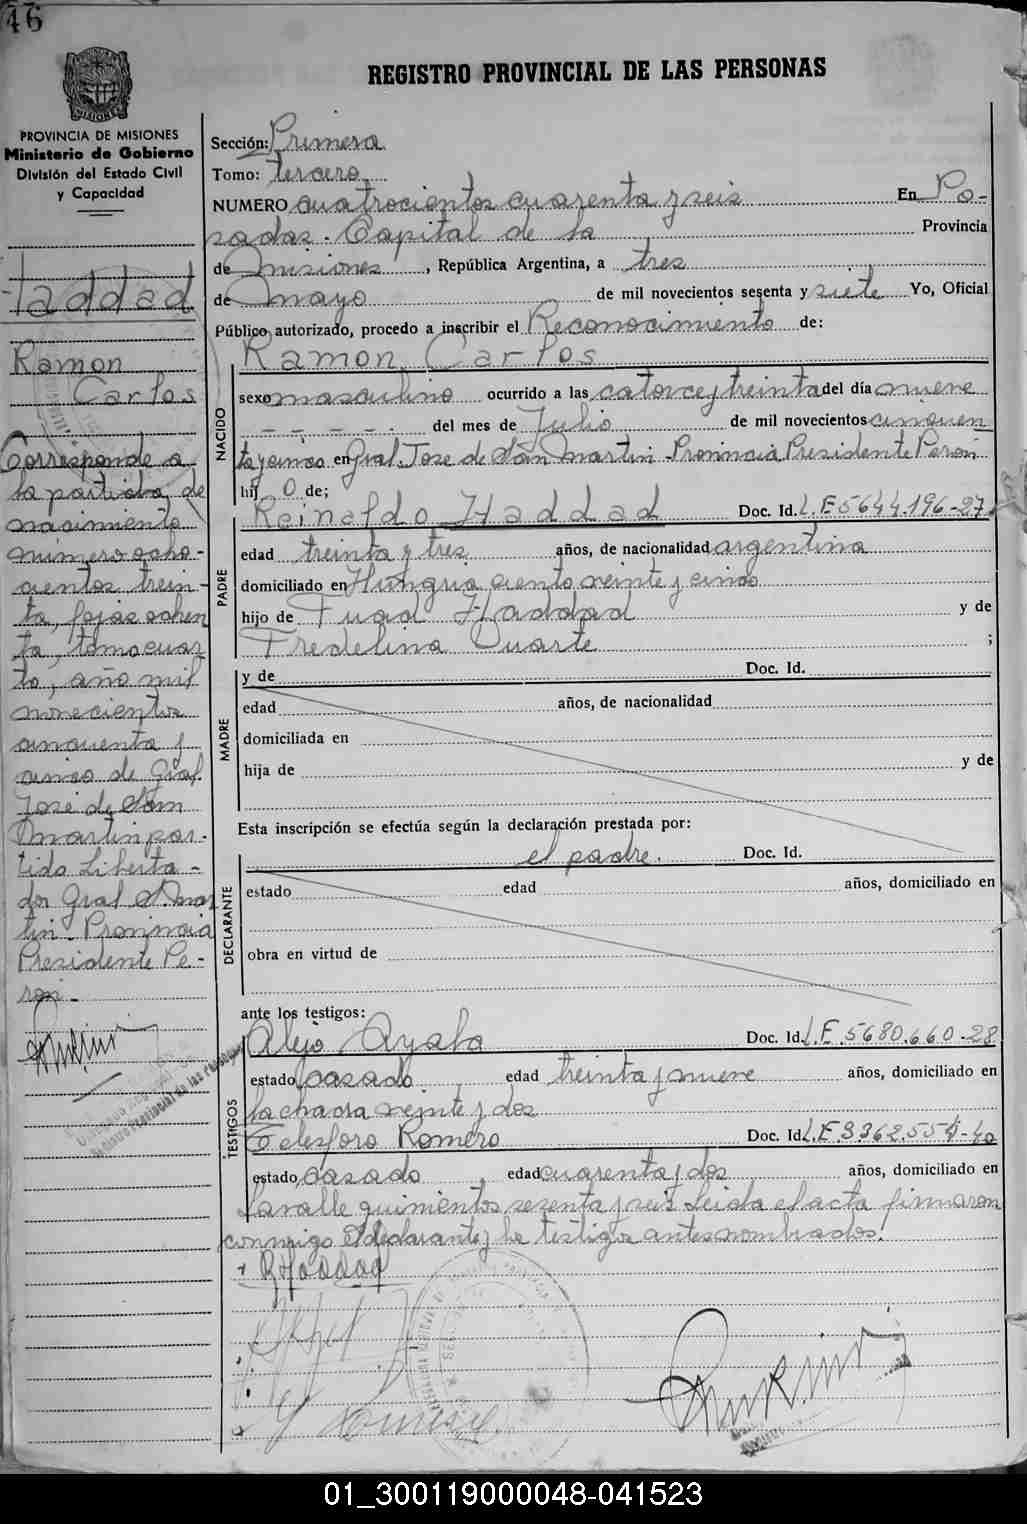 46
REGISTRO PROVINCIAL DE LAS PERSONAS
PROVINCIA DE MISIONES
Ministerio de Gobierno
División del Estado Civil
y Capacidad
Haddad
Ramon
Carlos
Corresponde a
la partida de
nacimiento
número ocho-
cientos trein-
ta, fojas ochen
ta, tomo cuar
to, año mil
novecientos
cincuenta y
cinco de Gral.
José de San
Martin par-
tido Liberta-
dor Gral S. Mar
tin - Provincia
Presidente Pe-
ron -
Sección: Primera
Tomo: tercero
NUMERO cuatrocientos cuarenta y seis En Po-
sadas. Capital de la Provincia
de Misiones, República Argentina, a tres
de mayo de mil novecientos sesenta y siete Yo, Oficial
Público autorizado, procedo a inscribir el Reconocimiento de:
Ramon Carlos
NACIDO
sexo masculino ocurrido a las catorce y treinta del día nueve
- - - - - del mes de Julio de mil novecientos cincuen
ta y cinco en Gral. Jose de San Martin - Provincia Presidente Peron
hij o de;
PADRE
Reinaldo Haddad Doc. Id. L.E 5644.196-27
edad treinta y tres años, de nacionalidad argentina
domiciliado en Hungria ciento veinte y cinco
hijo de Fuad Haddad y de
Fredelina Duarte ;
MADRE
y de Doc. Id.
edad años, de nacionalidad
domiciliada en
hija de y de
Esta inscripción se efectúa según la declaración prestada por:
el padre. Doc. Id.
DECLARANTE
estado edad años, domiciliado en
obra en virtud de
ante los testigos:
TESTIGOS
Alejo Ayala Doc. Id. L.E. 5680.660-28
estado casado edad treinta y nueve años, domiciliado en
la chacra veinte y dos
Telesforo Romero Doc. Id. L.E 3362.554-40
estado casado edad cuarenta y dos años, domiciliado en
Lavalle quinientos sesenta y seis Leida el acta firmaron
conmigo el declarante y los testigos antes nombrados.
RHaddad
01_300119000048-041523